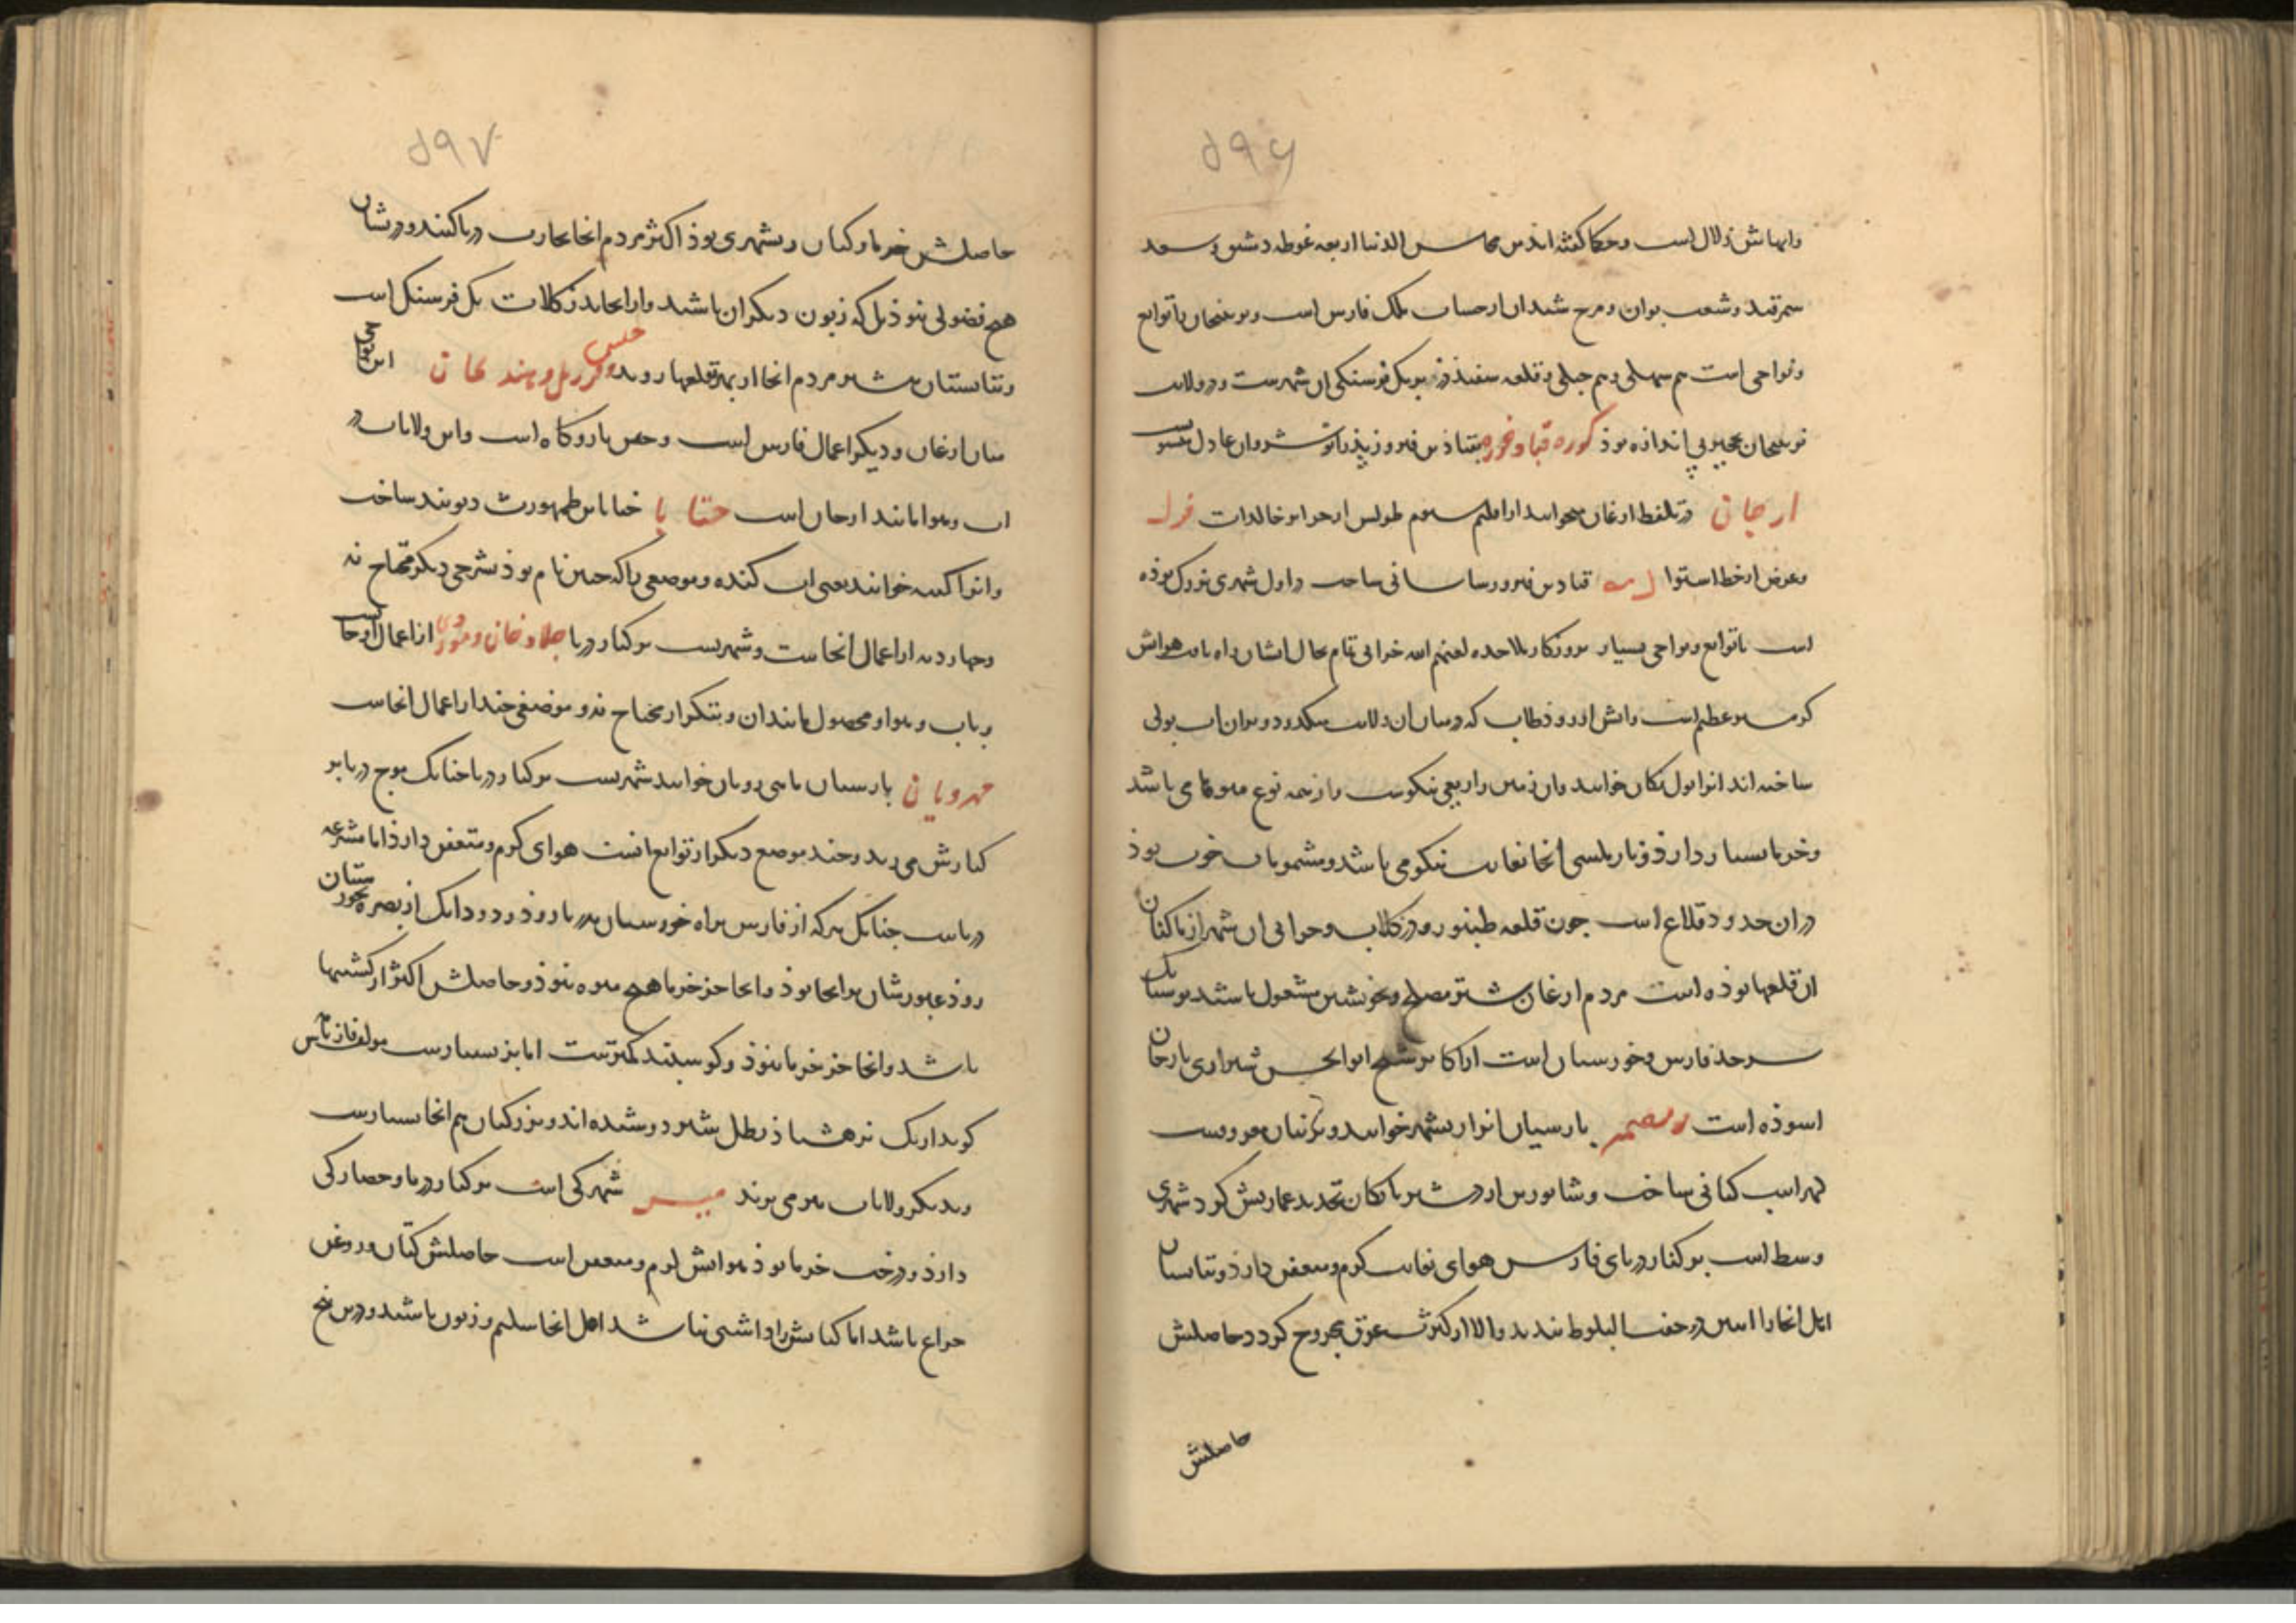 ۵۹۶
وابهاش زلال است و حکما گفته اند من محاسن الدنیا اربعه غوطه دمشق و سعد
سمرقند و شعب بوان و مرج شیدان از حساب ملک فارس است و نوبنجان با توابع
و نواحی است هم سهلی و هم جبلی و قلعه سفیددز بریک فرسنگی ان شهرست و در ولایت
نوبنجان نخجیر بی اندازه بوذ کوره قباد خوره بقباذ بن فیروز پذر انوشروان عادل منسوب
ارجان در تلفظ ارغان میخوانند از اقلیم سیوم طولش از جزایر خالدات
و عرض از خط استوا قباد بن فیروز ساسانی ساخت در اول شهری بزرک بوذه
است با توابع و نواحی بسیار بروزکار ملاحده لعنهم الله خرابی تمام بحال ایشان راه یافت هوایش
کرمسیر عظیم است و ابش از رود طاب که در میان ان ولایت میگذرد و بران اب پولی
ساخته اند انرا پول تکان خوانند و ان زمین را ریعی نیکوست و از همه نوع میوهای باشد
و خرما بسیار دارذ و نار ملسی انجا بغایت نیکو می باشد و مشمومات خوب بوذ
در ان حدود قلاع است چون قلعه طنبور و دز کلاب و خرابی ان شهر از ساکنان
ان قلعها بوذه است مردم ارغان بیشتر مصلح و بخویشتن مشغول باشند بوشتانک
سرحذ فارس و خوزستان است از اکابر شیخ ابوالحسن شیرازی بارجان
اسوذه است ریصهر پارسیان انرا ریشهر خوانند و بزبیان معروفست
لهراسب کیانی ساخت و شاپور بن اردشیر بابکان تجدید عمارتش کرد شهری
وسط است بر کنار دریای فارس هوای بغایت کرم و متعفن دارذ و بتابستان
اهل انجا را اسن در جفت البلوط نبندند والا از کثرت عرق مجروح کردد و حاصلش
حاصلش
۵۹۷
حاصلش خرما و کتان ریشهری بوذ اکثر مردم انجا تجارت دریا کنند و درشان
هیچ فضولی نبوذ بل که زبون دیکران باشند و از انجا بدز کلات یک فرسنک است
و بتابستان بیشتر مردم انجا از بهر هوا بقلعها روند جلیس و فرزک و هندیجان این نواحی
میان ارغان و دیکر اعمال فارس است و جلس بارو کاه است و این ولایات در
اب و هوا مانند ارجان است جنابا جنابا بن طهمورث دیوبند ساخت
و انرا کنبه خوانند یعنی اب کنده و موضعی را که چنین نام بوذ بشرحی دیکر محتاج نه
و چهار دیه از اعمال انجاست و شهریست بر کنار دریا جلادخان و نیوری از اعمال ارجانست
و باب و هوا و محصول مانند ان و بتکرار محتاج نه و موضعی چند از اعمال انجاست
مهرویان پارسیان ماهی رویان خوانند شهریست بر کنار دریا چنانک موج دریا بر
کنارش می زند و چند موضع دیکر از توابع انست هوای کرم و متعفن دارذ اما مشرعه
دریاست چنانک هرکه از فارس براه خوزستان بدریا روذ و انک از بصره بخوزستان
روذ عبورشان بر انجا بوذ و انجا جز خرما هیچ میوه نبوذ و حاصلش اکثر از کشتیها
باشد و انجا جز خرما نبوذ و کوسپند کمترست اما بز بسیارست مولف فارس نامه
کوید از یک نره هشتاذ رطل بیشتر دوشیده اند و بزر کتان هم انجا بسیارست
و بدیکر ولایات هم می برند سینیز شهرکی است بر کنار دریا و حصارکی
دارذ و درخت خرما بوذ هوایش کرم و متعفن است حاصلش کتان و روغن
چراغ باشد اما کتانش را داشتی نباشد اهل انجا سلیم و زبون باشند و در بن پنج